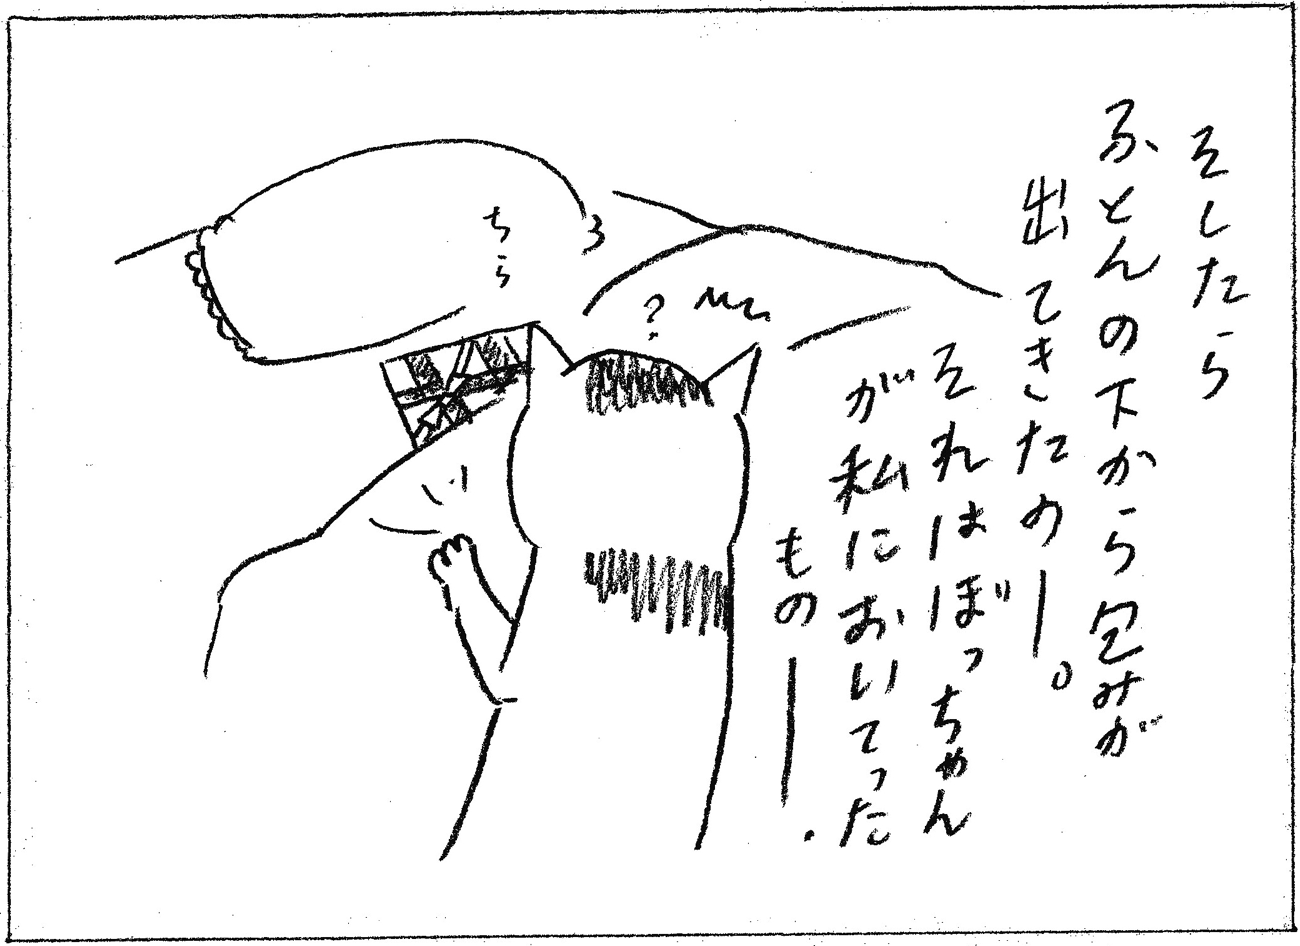 そしたら
ふとんの下から包みが
出てきたのー。
それはぼっちゃん
が私においてった
ものー.
?
ちら